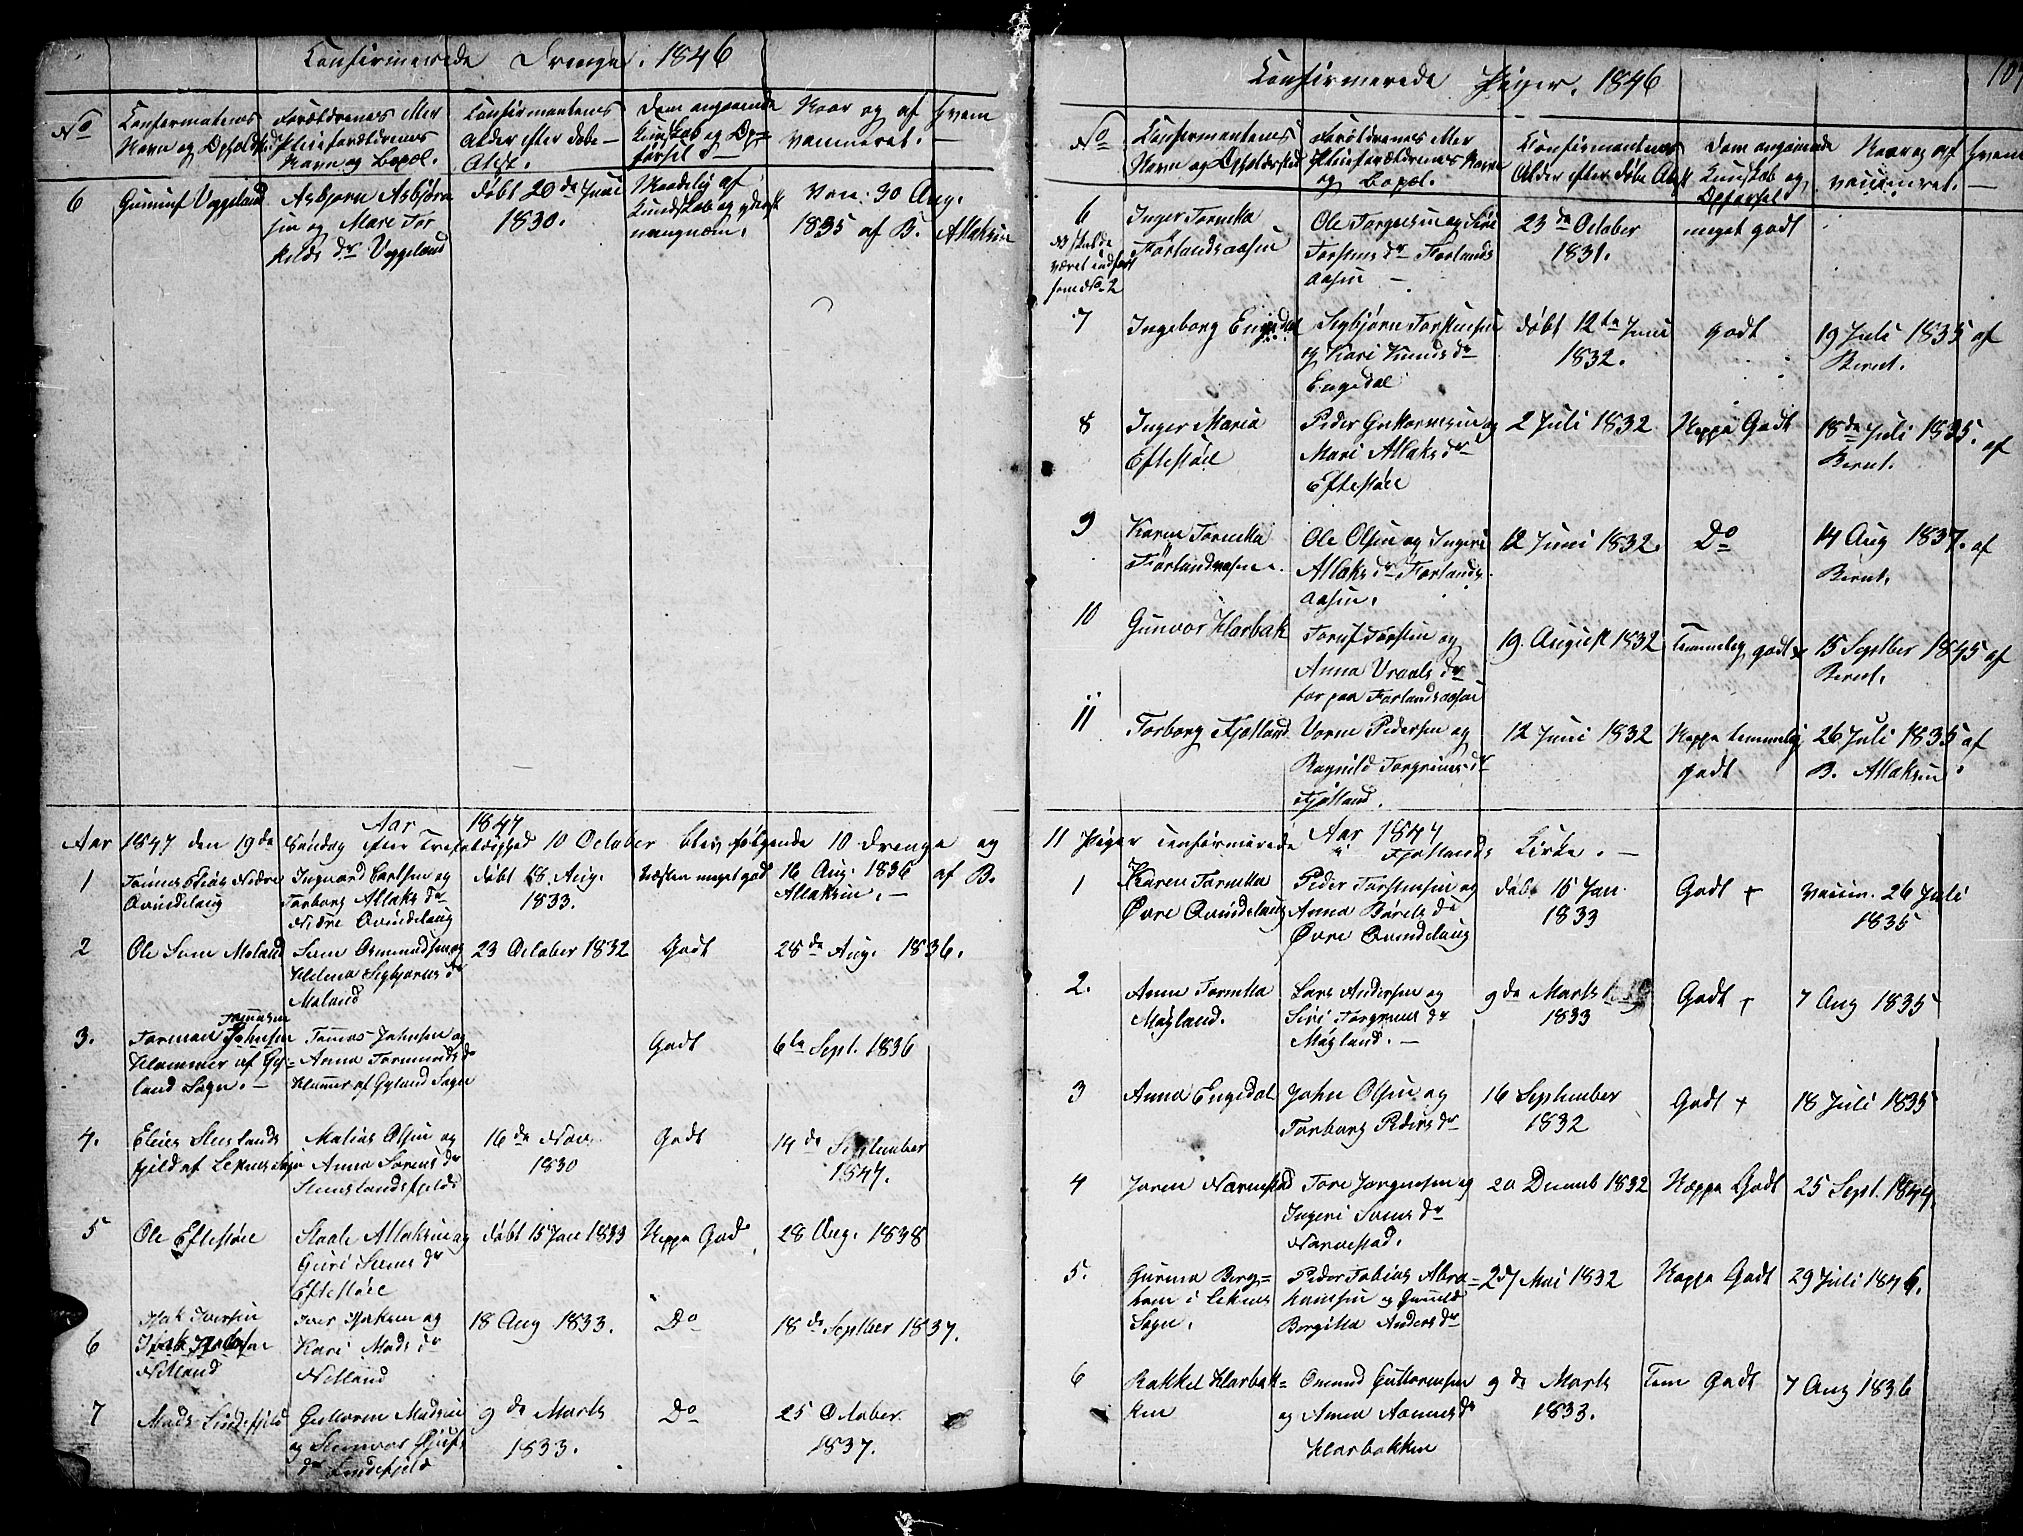 Confirmerede Drenge. 1846
No
Confirmatenes Navn og Opholdsted
Forældrenes eller Pleieforældrenes Navn og Bopæl.
Confirmantenes Alder efter Døbe-Attest.
Dom angaaende Kundskab og Opførsel
Naar og af hvem vaccineret.
6
Gunuf Veggeland
Asbjørn Asbjørn
sen og Mari Tor
kelds dr Veggeland
døbt 20de Juni
1830.
Maadelig af
Kundskab og
Vac: 30 Aug.
1835 af B. Atlaksen
Aar 1847
Aar 1847 den 19de Søndag efter Trefoldighed 10 October blev følgende 10 Drenge og
1
Tønnes Elias Nedre
Qvindelaug
Ingvard Carlsen og
Torborg Atlaks dr
Nedre Qvindelaug
døbt 18 Aug.
1833.
Næsten meget god
16 Aug. 1836 af B.
Atlaksen. -
2
Ole Moland
Osmundsen og
Helene Sigbjørns dr
Moland
23 October 1832
Godt
28de Aug. 1836.
3.
Tønnesen
Tormon Johnsen
Hammer af Gy=
land Sogn. -
Tønnes Johnsen og
Anna Tormunds dr
Hammer af Gyland Sogn
Godt
6te Sept. 1836
4.
Elias Stenslands
fjeld af Lekens Sogn
Matias Olsen og
Anna Sørens dr
Stenslandsfjeld
16de Nov.
1830
Godt
14de September
1847.
5
Ole Eftestøll
Staale Atlaksen og
Guri Svens dr
Eftestøll
døbt 15 Jan 1833
Neppe Godt
28 Aug. 1838
6
Isak Iversen
Netland
Iver Isaksen og
Kari Mads dr
Netland
18 Aug 1833.
Do
18de Septber 1837.
7
Mads Lindefjeld
Guttorm Madsen
og Stenvor
dr Lindefjeld
9de Marts
1833.
Do
25 October
1837.
Confirmerede Piger. 1846
107
No
Confirmantenes Navn og Opholdsted
Forældrenes eller Pleieforældrenes Navn og Bopæl.
Confirmantenes Alder efter Døbe Attest
Dom angaaende Kundskab og Opførsel
Naar og af hvem vaccineret. -
6
No skulde
været indført
som No 2
Inger Tomette
Førlandsaasen
Ole Torgersen og Siri
Torstens dr Førlands
aasen -
23de October
1831.
meget godt
7
Ingeborg Engedal
Sigbjørn Torstensen
og Kari Knuds dr
Engedal
døbt 12te Juni
1832.
godt
19 Juli 1835 af
Berent.
8
Inger Maria
Eftestøel
Peder Guttormsen og
Mari Atlaks dr
Eftestøll
2 Juli 1832
Neppe Godt
18de Juli 1835. af
Berent.
9
Karen Tomette
Førlandsaasen.
Ole Olsen og Ingeri
Atlaks dr Førlands
aasen.
12 Juni 1832.
Do
14 Aug 1837. af
Berent.
10
Gunvor Harbak
Torstein og
Anna dr
for paa Førlandsaasen
19. August 1832
Temmelig godt
15 Septber 1845 af
Berent.
11
Torborg Fjotland
Pedersen og
Ragnild Torgrims dr
Fjotland.
12 Juni 1832
Neppe temmelig
godt
26 Juli 1835 af
B. Atlaksen.
11 Piger confirmerede i Fjotlands Kirke. -
Aar 1847
1
Karen Tomette
Øvre Qvindelaug
Peder Torstensen og
Anna Børels dr
Øvre Qvindelaug
døbt 15 Jan
1833
Godt +
Vaccin. 26 Juli
1835
2.
Anne Tomette
Møgland.
Lars Andersen og
Siri Torgrims dr
Møgland. -
9de Marts
1833
Godt +
7 Aug 1835
3
Anna Engedal
John Olsen og
Torborg Peders dr
16 September
1832
Godt +
18 Juli 1835
4
Joren Narvestad
Tore Jørgensen og
Ingeri Svens dr
Narvestad.
20 Decemb 1832
Neppe Godt
25 Sept. 1844.
5.
Gurine Berg=
hom i Lekens
Sogn.
Peder Tobias Abra=
hamsen og Gunild
Bergitta Anders dr
27 Mai 1832
Neppe Godt
29 Juli 1846.
6
Rakkel Harbak=
ken
Osmund Guttormsen
og Anna Aanens dr
Harbakken
9de Marts
1833.
Tem Godt
7 Aug 1836